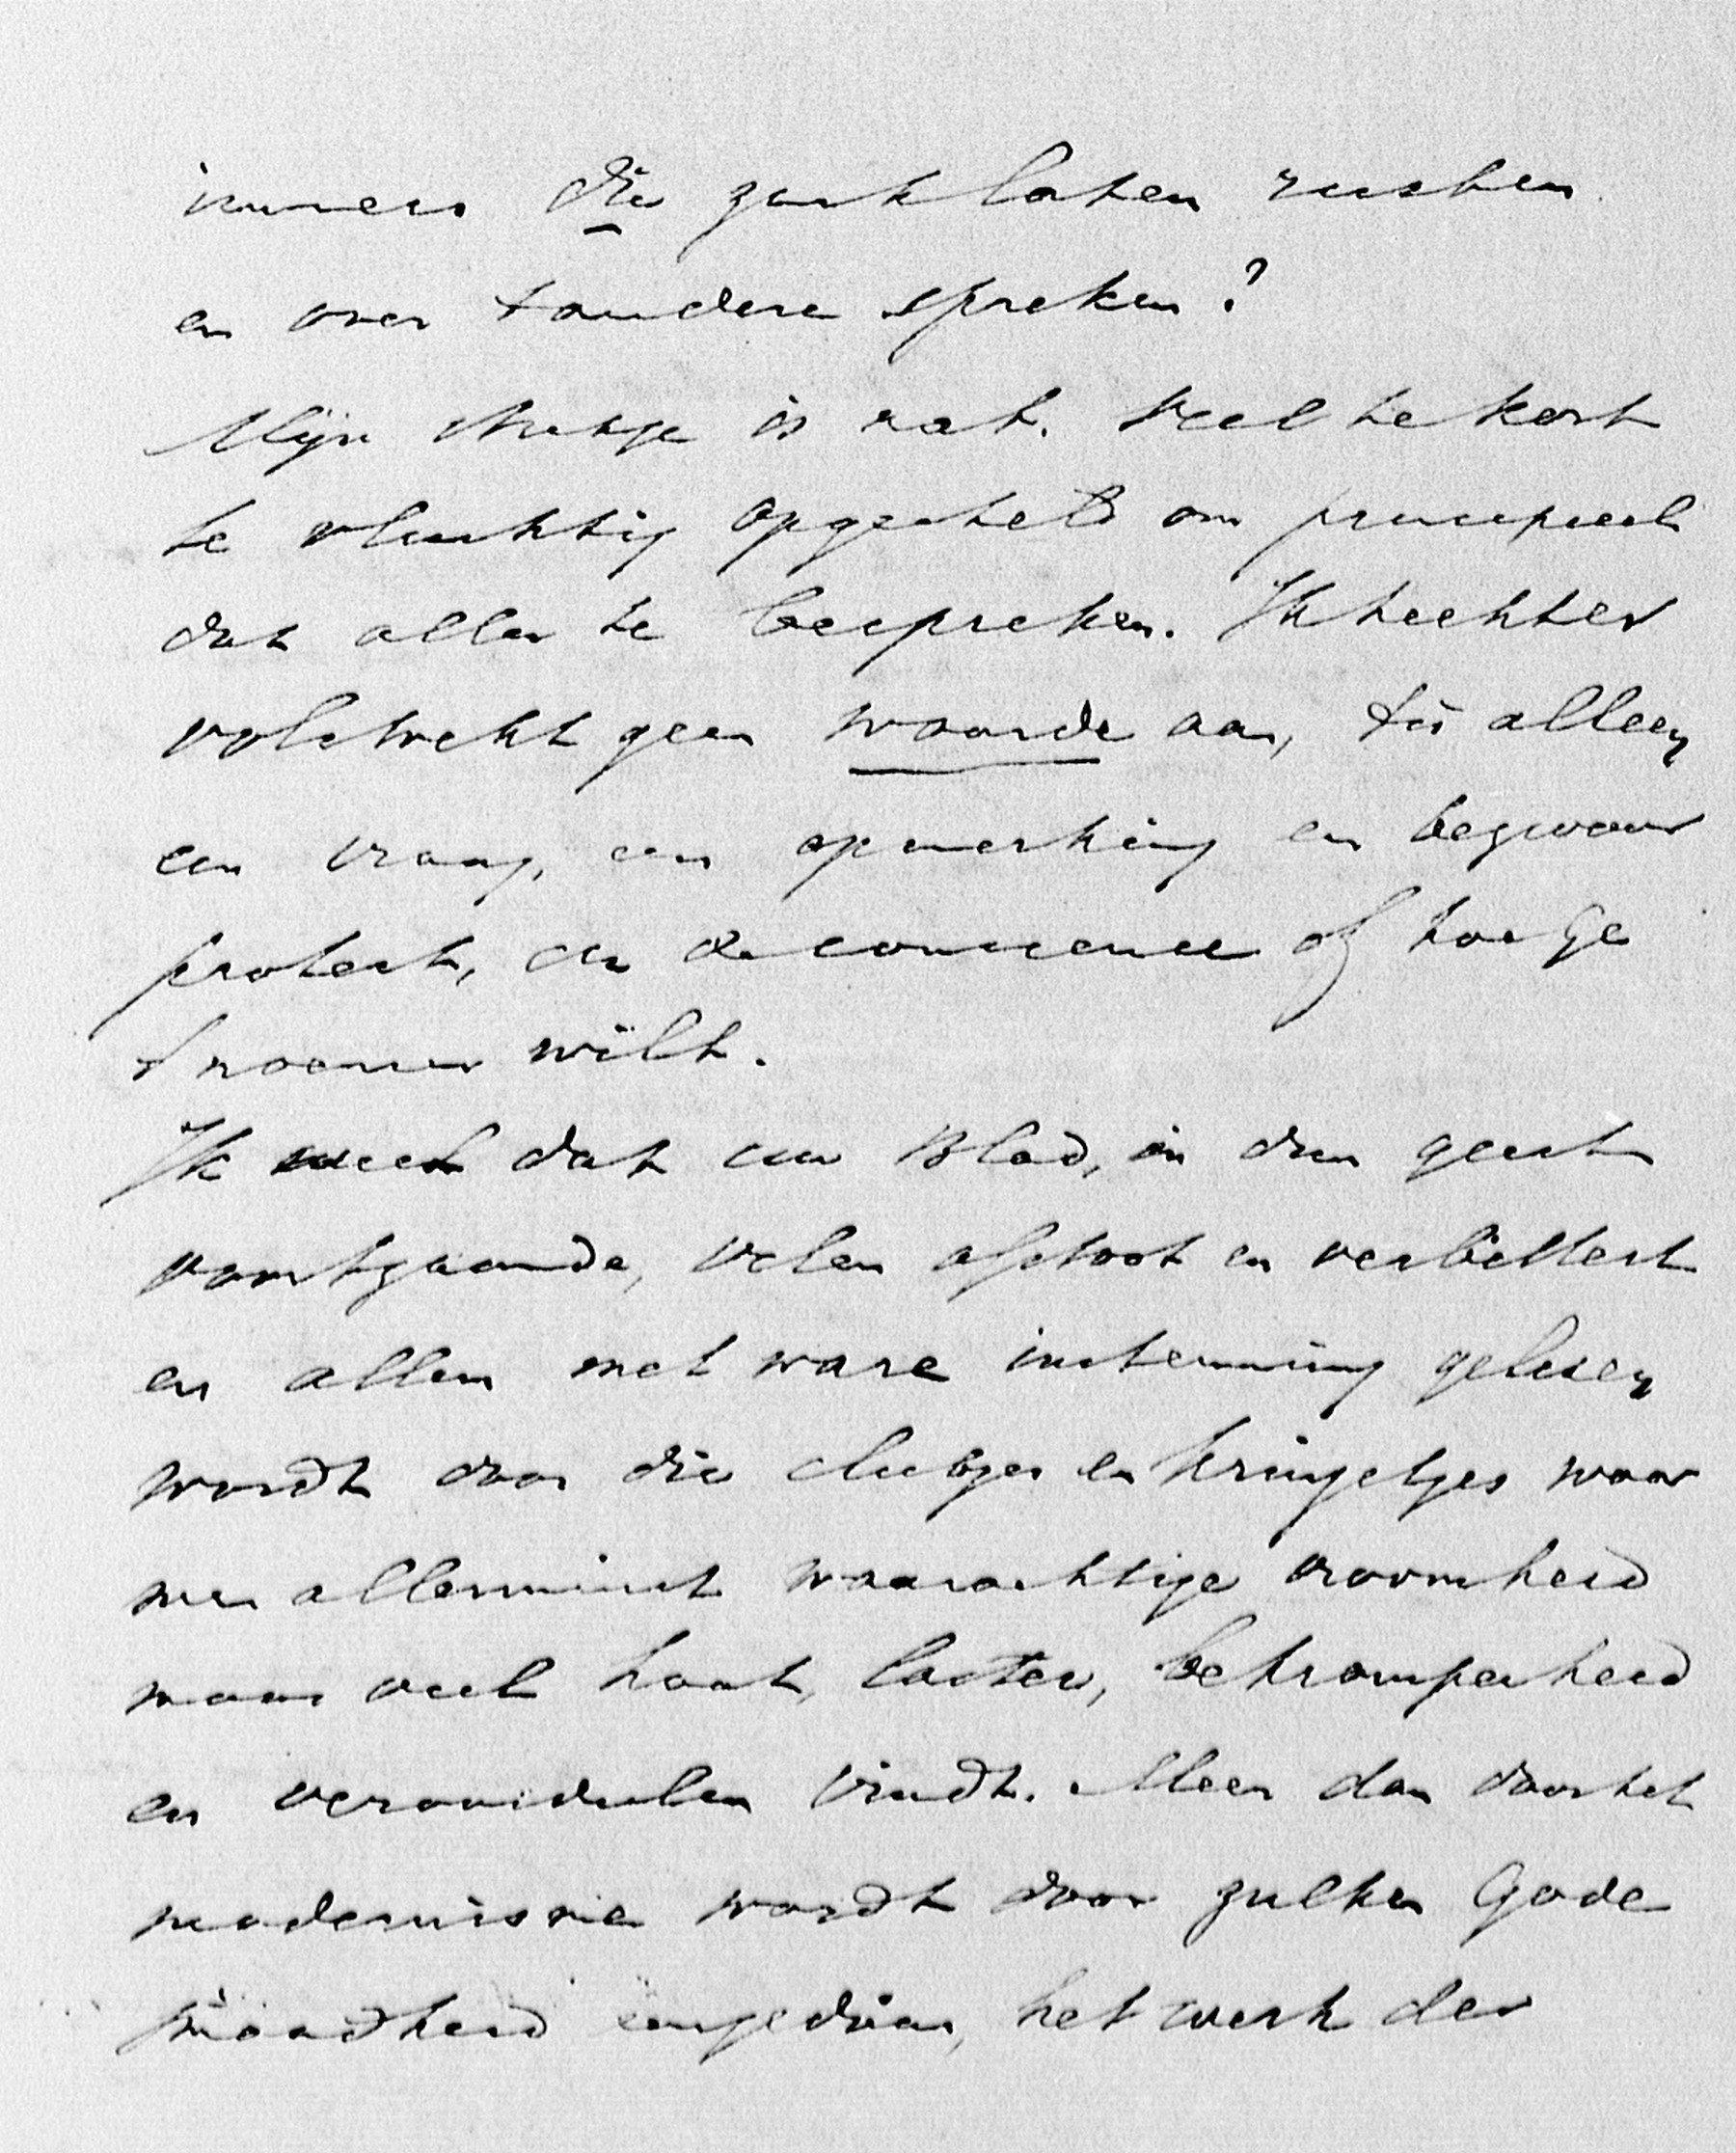 immers die zaak laten rusten
en over 't andere spreken?
Mijn stukje is nat. veel te kort
te vluchtig opgesteld om principieel
dat alles te bespreken. Ik hecht er
volstrekt geen waarde aan, 't is alleen
een vraag, een opmerking een bezwaar
protest, een of hoe Ge
't noemen wilt.
Ik weet dat uw Blad, in dien geest
voortgaande, velen afstoot en verbittert
en alleen met ware instemming gelezen
wordt door die clubjes en kringetjes waar
men allerminst waarachtige vroomheid
maar veel haat, laster, bekrompenheid
en veroordeelen vindt. Meer dan door het
modernisme wordt door zulken Gode
smaadheid aangedaan, het werk der